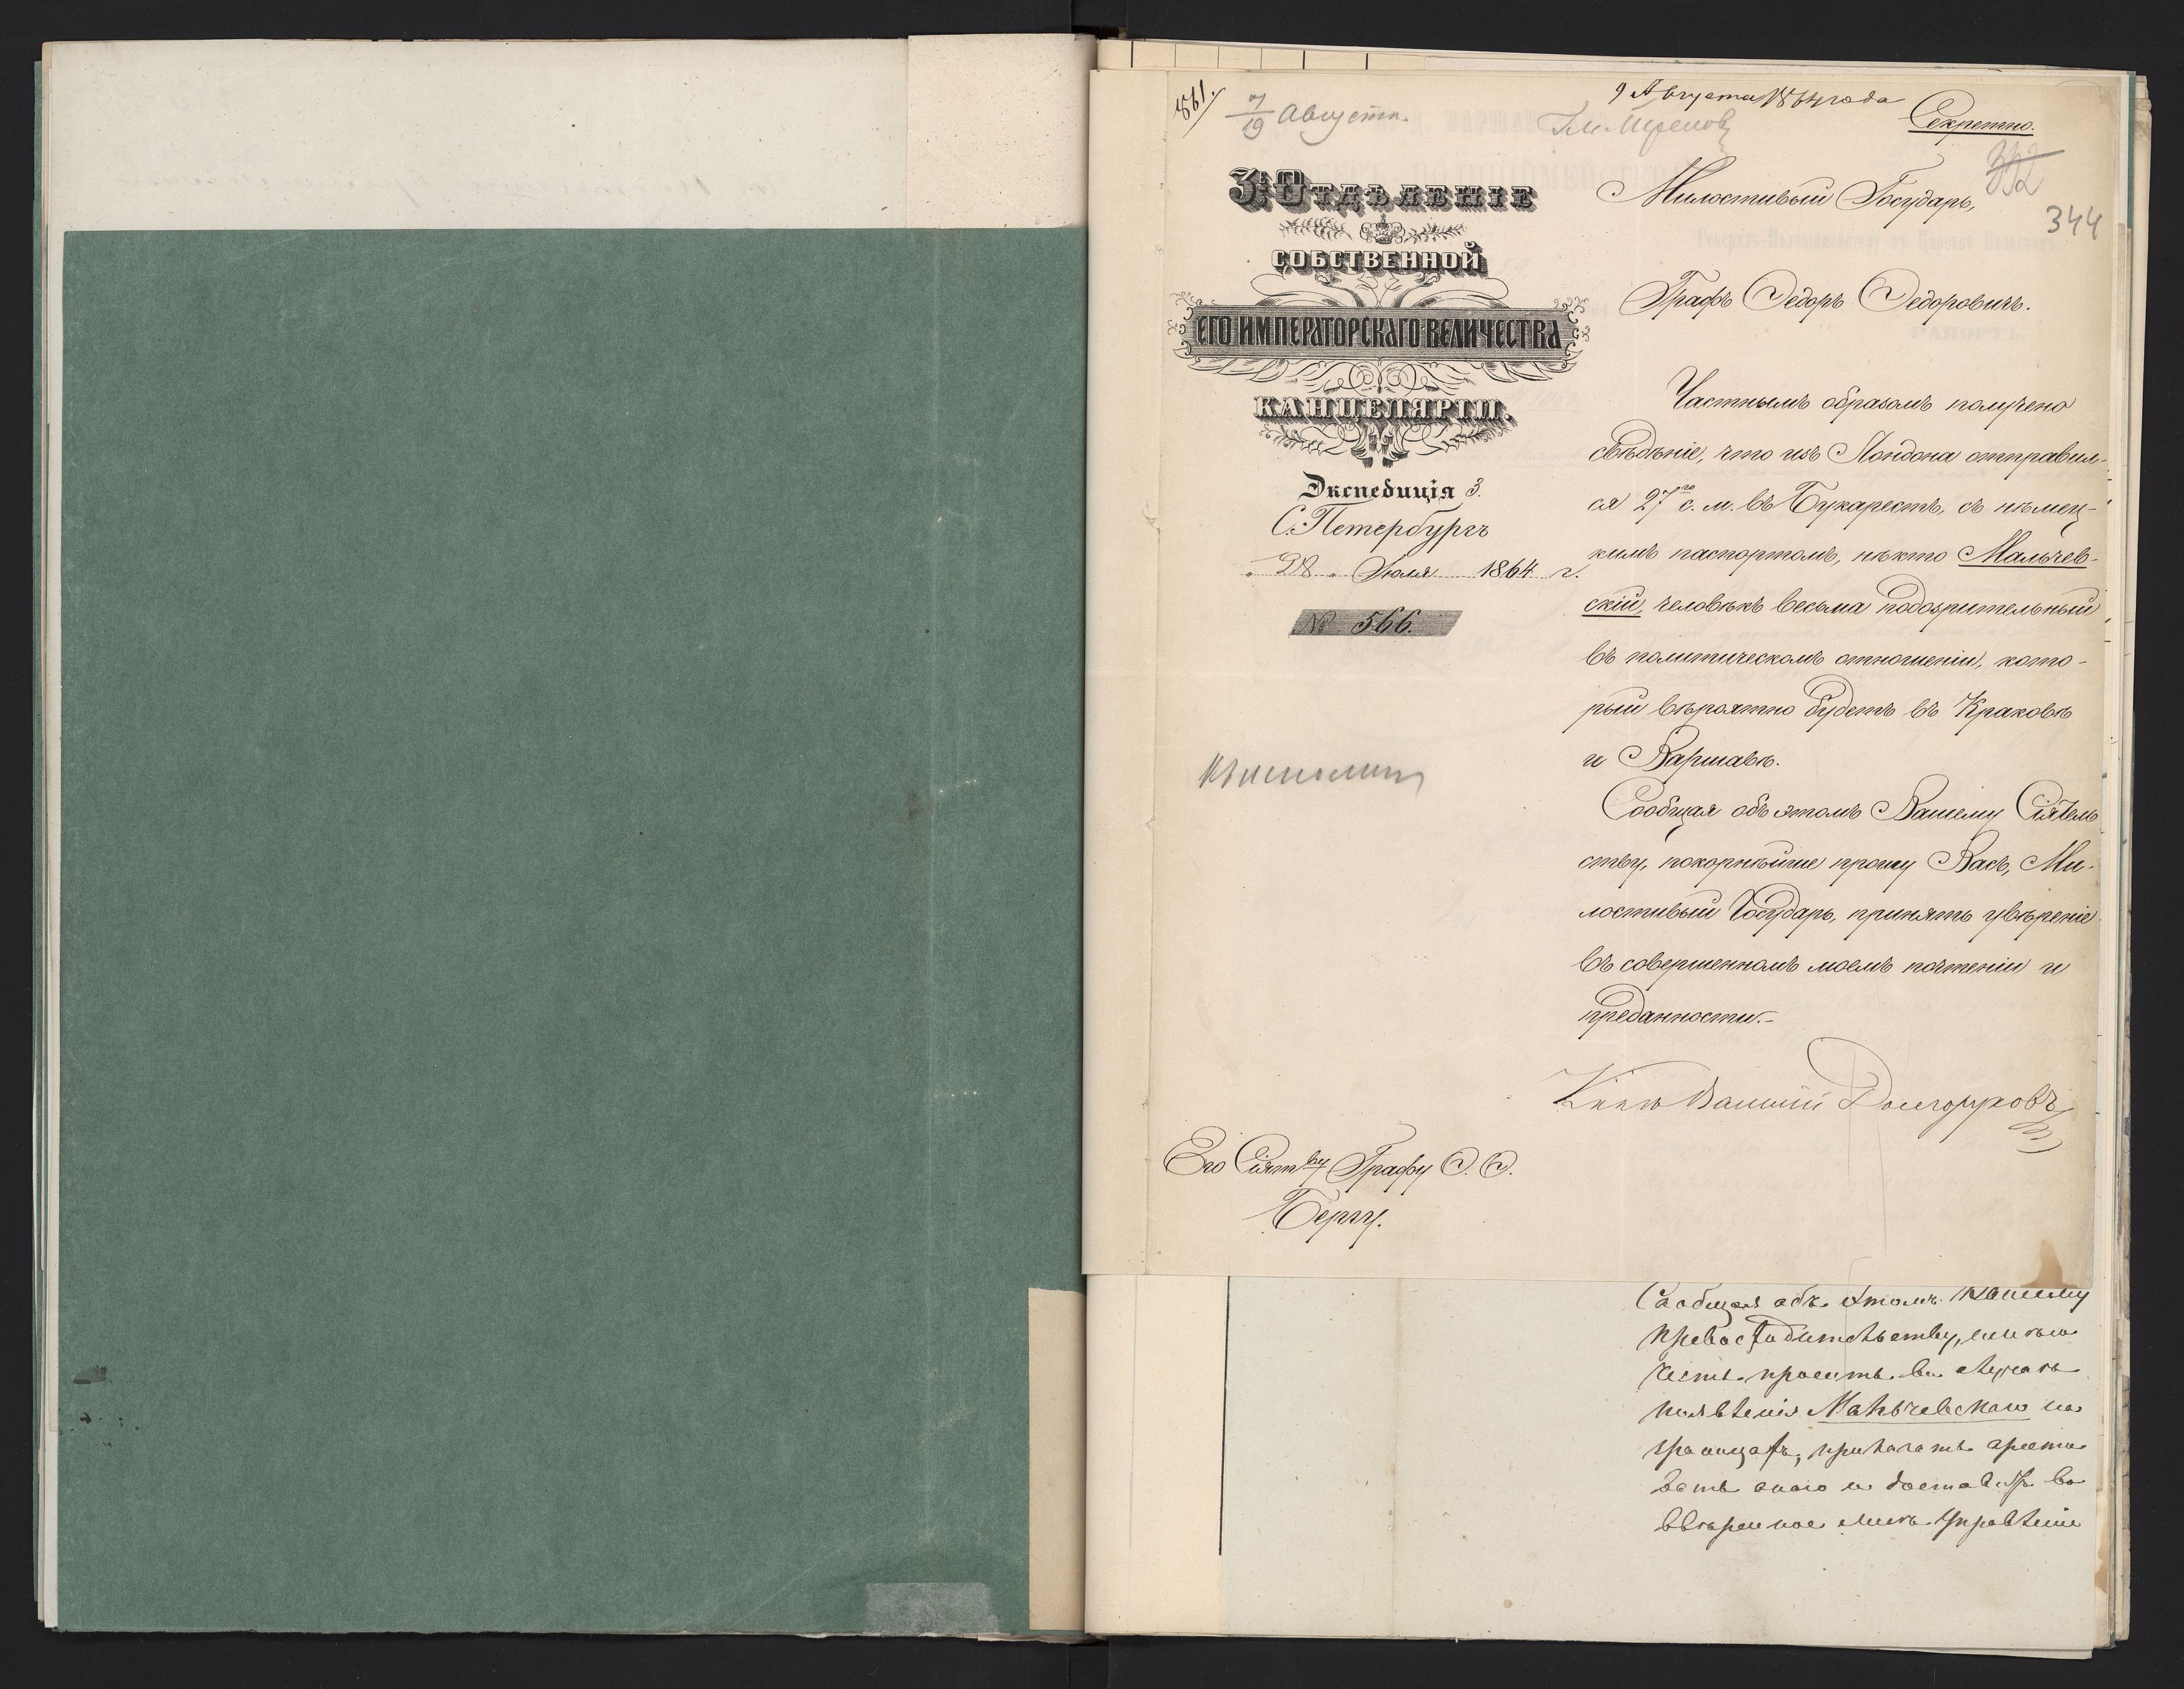 561.
7/19 Августа.
9 Августа 1864 года
Ген. М. Трепову
Секретно.
352
344
3е ОТДѢЛЕНІЕ
СОБСТВЕННОЙ
ЕГО ИМПЕРАТОРСКАГО ВЕЛИЧЕСТВА
КАНЦЕЛЯРІИ.
Экспедиція 3.
С. Петербургъ
„ 28 „ Іюля 1864 г.
№ 566.
Милостивый Государь,
Графъ Ѳедоръ Ѳедоровичъ.
Частнымъ образомъ получено
свѣдѣніе, что изъ Лондона отправил-
ся 27го с. м. въ Букарестъ, съ нѣмец-
кимъ паспортомъ, нѣкто Мальчев-
скій, человѣкъ весьма подозрительный
въ политическомъ отношеніи, кото-
рый вѣроятно будетъ въ Краковѣ
и Варшавѣ.
Сообщая объ этомъ Вашему Сіятель
ству, покорнѣйше прошу Васъ, Ми-
лостивый Государь, принять увѣреніе
въ совершенномъ моемъ почтеніи и
преданности.-
Князь Василій Долгоруковъ
Его Сіятву Графу Ѳ. Ѳ.
Бергу.
Сообщая объ этомъ Вашему
Превосходительству, имѣю
честь просить въ случаѣ
появленія Мальчевскаго на
границахъ, приказать аресто
вать онаго и доставить во
ввѣренное мнѣ Управленіе